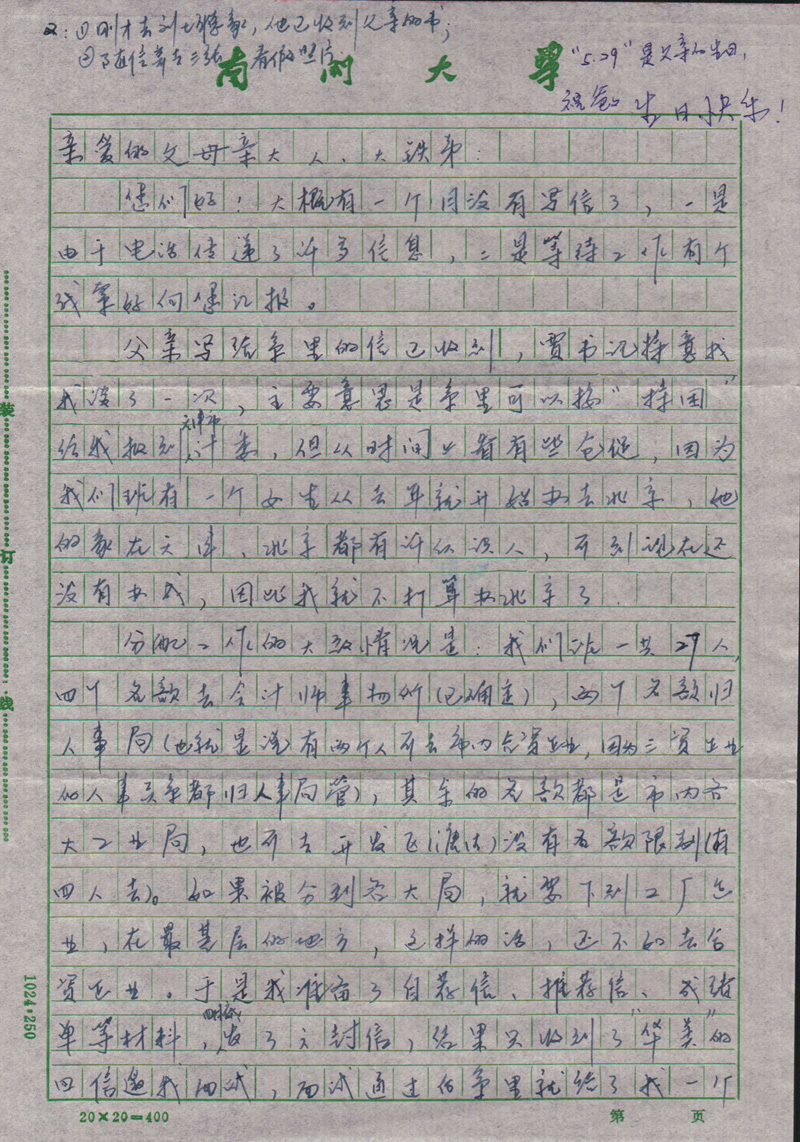 又：①刚才去刘培豫家，他已收到父亲的书；
②随信寄去三张 看你照片
南开大学
"5.29"是父亲的生日，
祝爸爸 生日快乐！
亲爱的父母亲大人、大铁弟：
您们好！大概有一个月没有写信了，一是
由于电话传递了许多信息，二是等待工作有个
结果好向您汇报。
父亲写给系里的信已收到，贾书记特意找
我谈了一次，主要意思是系里可以按"特困"
给我报到天津市计委，但从时间上看有些仓促，因为
我们班有一个女生从去年就开始办去北京，她
的家在天津、北京都有许多认识人，可到现在还
没有办成，因此我就不打算办北京了.
分配工作的大致情况是：我们班一共27人，
四个名额去会计师事物所（已确定），两个名额归
人事局（也就是说有两个人可去市内合资企业，因为三资企业
的人事关系都归人事局管），其余的名额都是市内各
大工业局，也可去开发区（塘沽）没有名额限制（有
四人去）。如果被分到各大局，就要下到工厂企
业，在最基层的地方，这样的话，还不如去合
资企业。于是我准备了自荐信、推荐信、成绩
单等材料，发了六封信，结果只收到了"华美"的
回信邀我面试，面试通过后系里就给了我一个
装
订
线
1024·250
20×20=400
第 页